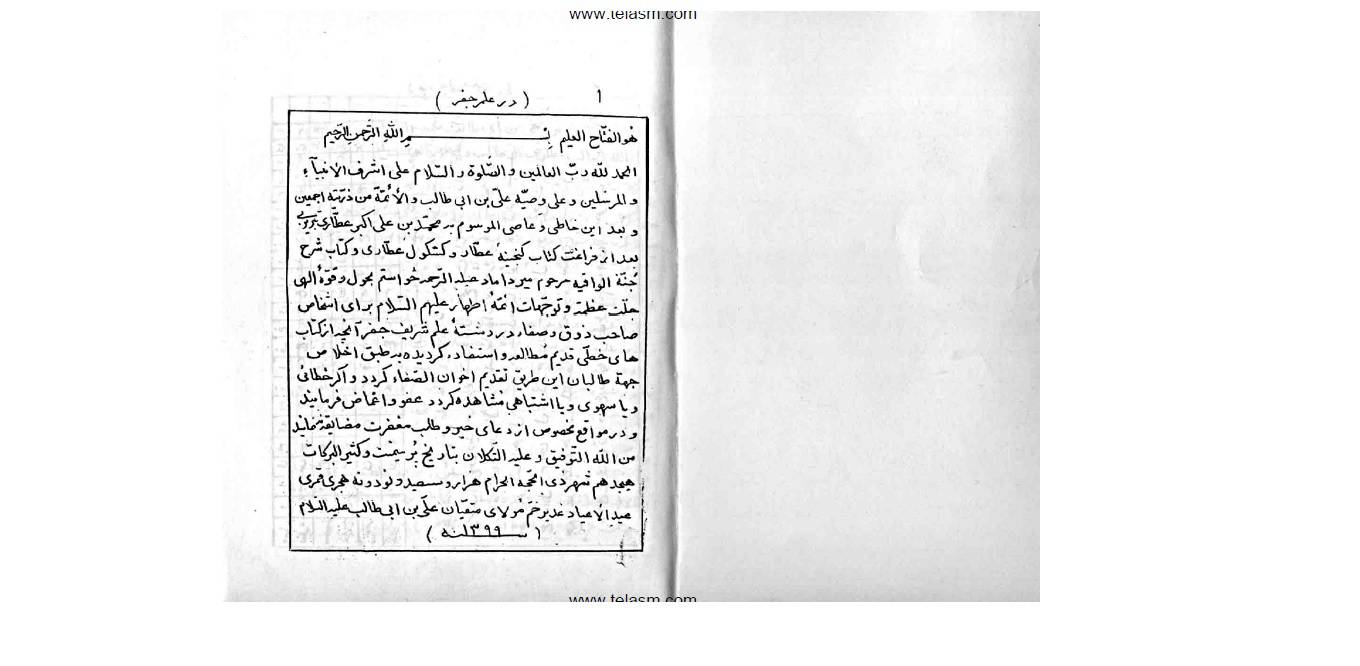 www.telasm.com
1 ( در علم جفر )
هوالفتّاح العلیم بِسْمِ اللّٰهِ الرَّحمنِ الرَّحیمِ
الحمد للّه ربّ العالمین و الصَّلوة و السّلام علی اشرف الأنبیآءِ
و المرسَلین و علی وصیّه علیّ بن ابی طالب و الأئمّة من ذریّته اجمعین
و بعد این خاطی و عاصی الموسوم به محمّد بن علی اکبر عطّاری تبریزی
بعد از فراغت کتاب گنجینهٔ عطّار و کشکول عطاری و کتاب شرح
جُنّة الواقیه مرحوم میرداماد علیه الرّحمه خواستم بحول و قوّهٔ الهی
جلّت عظمته و توجّهات ائمّهٔ اطهار علیهم السّلام برای اشخاص
صاحب ذوق و صفاء در رشتهٔ علم شریف جفر آنچه از کتاب
های خطّی قدیم مُطالعه و استفاده گردیده بر طبق اخلاص
جهة طالبان این طریق تقدیم اخوان الصّفاء گردد و اگر خطائی
و یا سهوی و یا اشتباهی مشاهده گردد عفو و اغماض فرمایند
و در مواقع مخصوص از دعای خیر و طلب مغفرت مضایقه ننمایند
من اللّه التّوفیق و علیه التّکلان بتاریخ پُر میمنت و کثیر البرکات
هیجدهم شهر ذی الحّجه الحرام هزار و سیصد و نود و نه هجری قمری
عیدِ الأعیاد غدیر خمّ مُولای متقیّان علیّ بن ابی طالب علیه السّلام
( سنه ۱۳۹۹ )
www.telasm.com